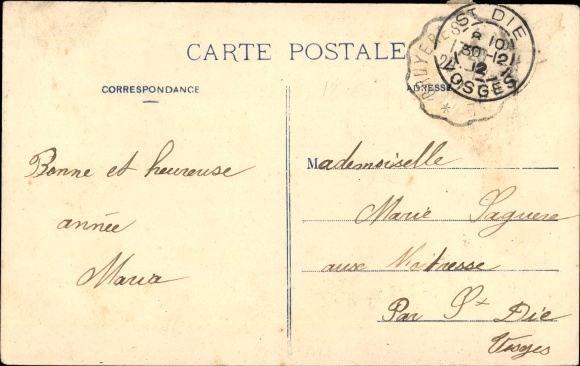 CARTE POSTALE
CORRESPONDANCE
ADRESSE
ST DIE
8 10
30-12
12
VOSGES
BRUYERES
Bonne et heureuse
année
Maria
Mademoiselle
Marie
aux
Par St Die
Vosges